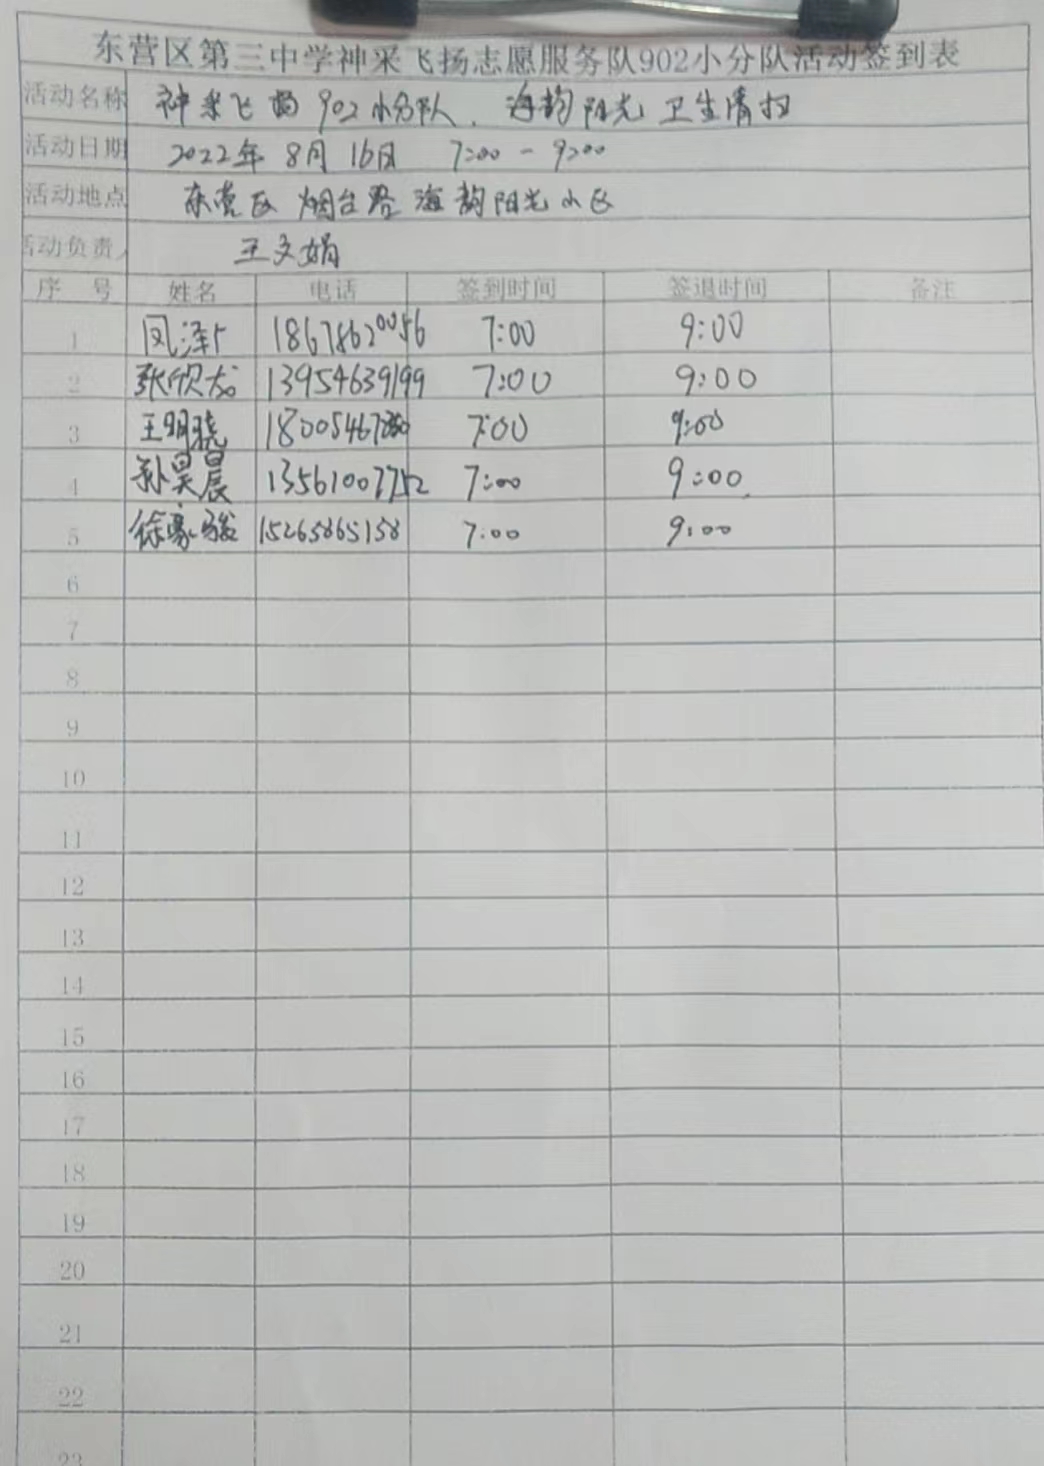 东营区第三中学神采飞扬志愿服务队902小分队活动签到表
活动名称 神采飞扬902小分队. 海韵阳光卫生清扫
活动日期 2022年8月16日 7:00-9:00
活动地点 东营区烟台路海韵阳光小区
活动负责人 王文娟
序号 姓名 电话 签到时间 签退时间 备注
1 18678620056 7:00 9:00
2 张欣 13954639199 7:00 9:00
3 王明骁 7:00 9:00
4 孙昊晨 13561007752 7:00 9:00
5 徐豪骏 15265865158 7:00 9:00
6
7
8
9
10
11
12
13
14
15
16
17
18
19
20
21
22
23